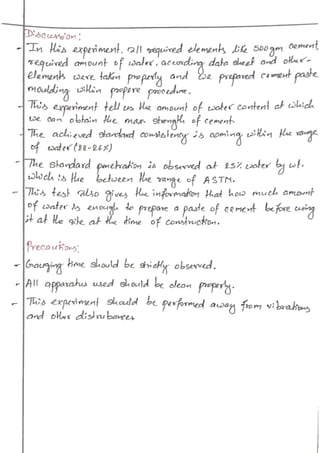 Discussion:
- In this experiment, all required elements like 500 gm cement,
required amount of water, according data sheet and other-
elements were taken properly and we prepared cement paste
moulding within propere procedure.
- This experiment tell us the amount of water content at which
we can obtain the max strength of cement.
- The achieved standard consistency is coming within the range
of water (22-26%)
- The standard penetration is observed at 25% water by wt.
which is the between the range of ASTM.
- This test also gives the information that how much amount
of water is enough to prepare a paste of cement before using
it at the site at the time of construction.
Precautions:
- Gauging time should be strictly observed.
- All apparatus used should be clean properly.
- This experiment should be performed away from vibrations
and other distrubances